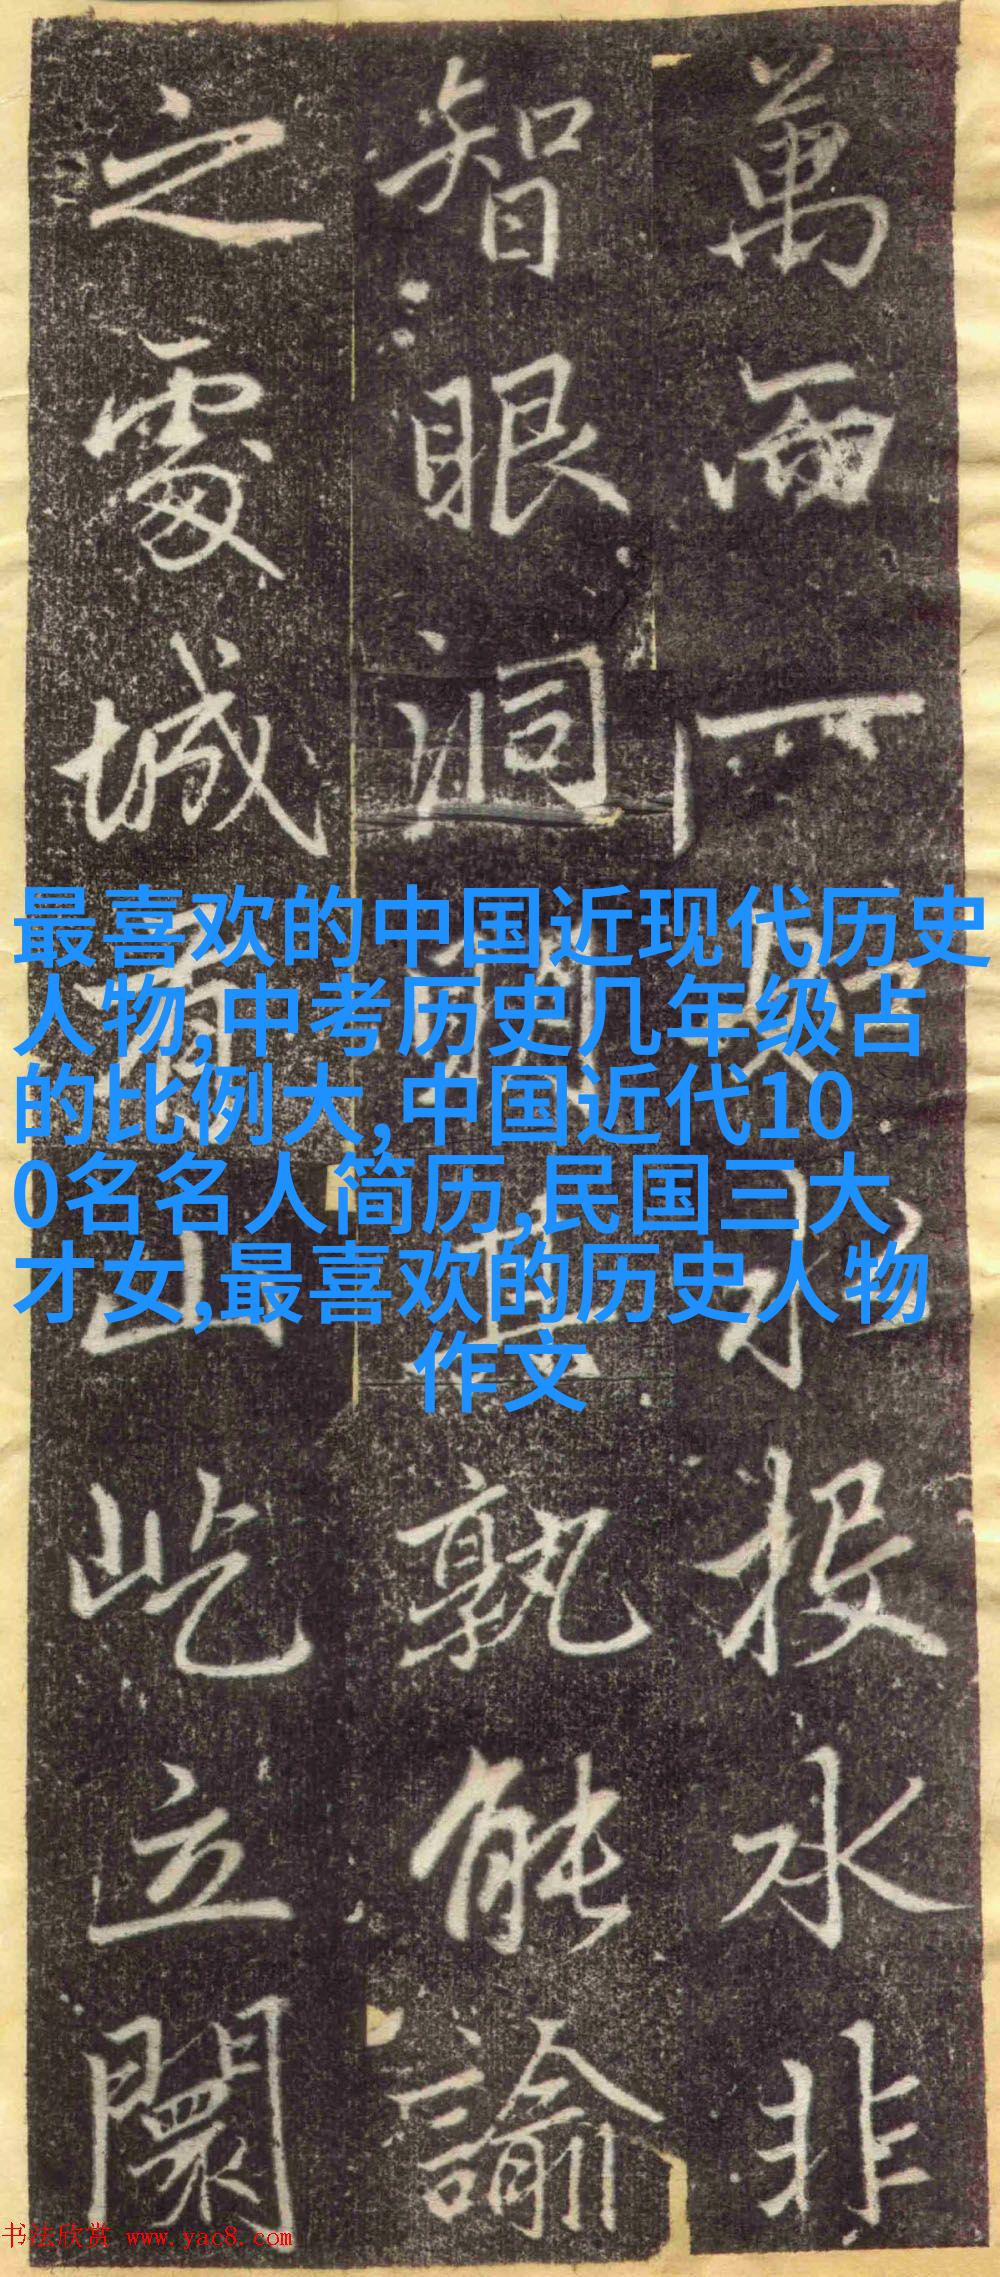 萬而一投水非
智眼洞孰能諭
之處城山屹立闤
最喜欢的中国近现代历史
人物,中考历史几年级占
的比例大,中国近代10
0名名人简历,民国三大
才女,最喜欢的历史人物
作文
书法欣赏 www.yac8.com